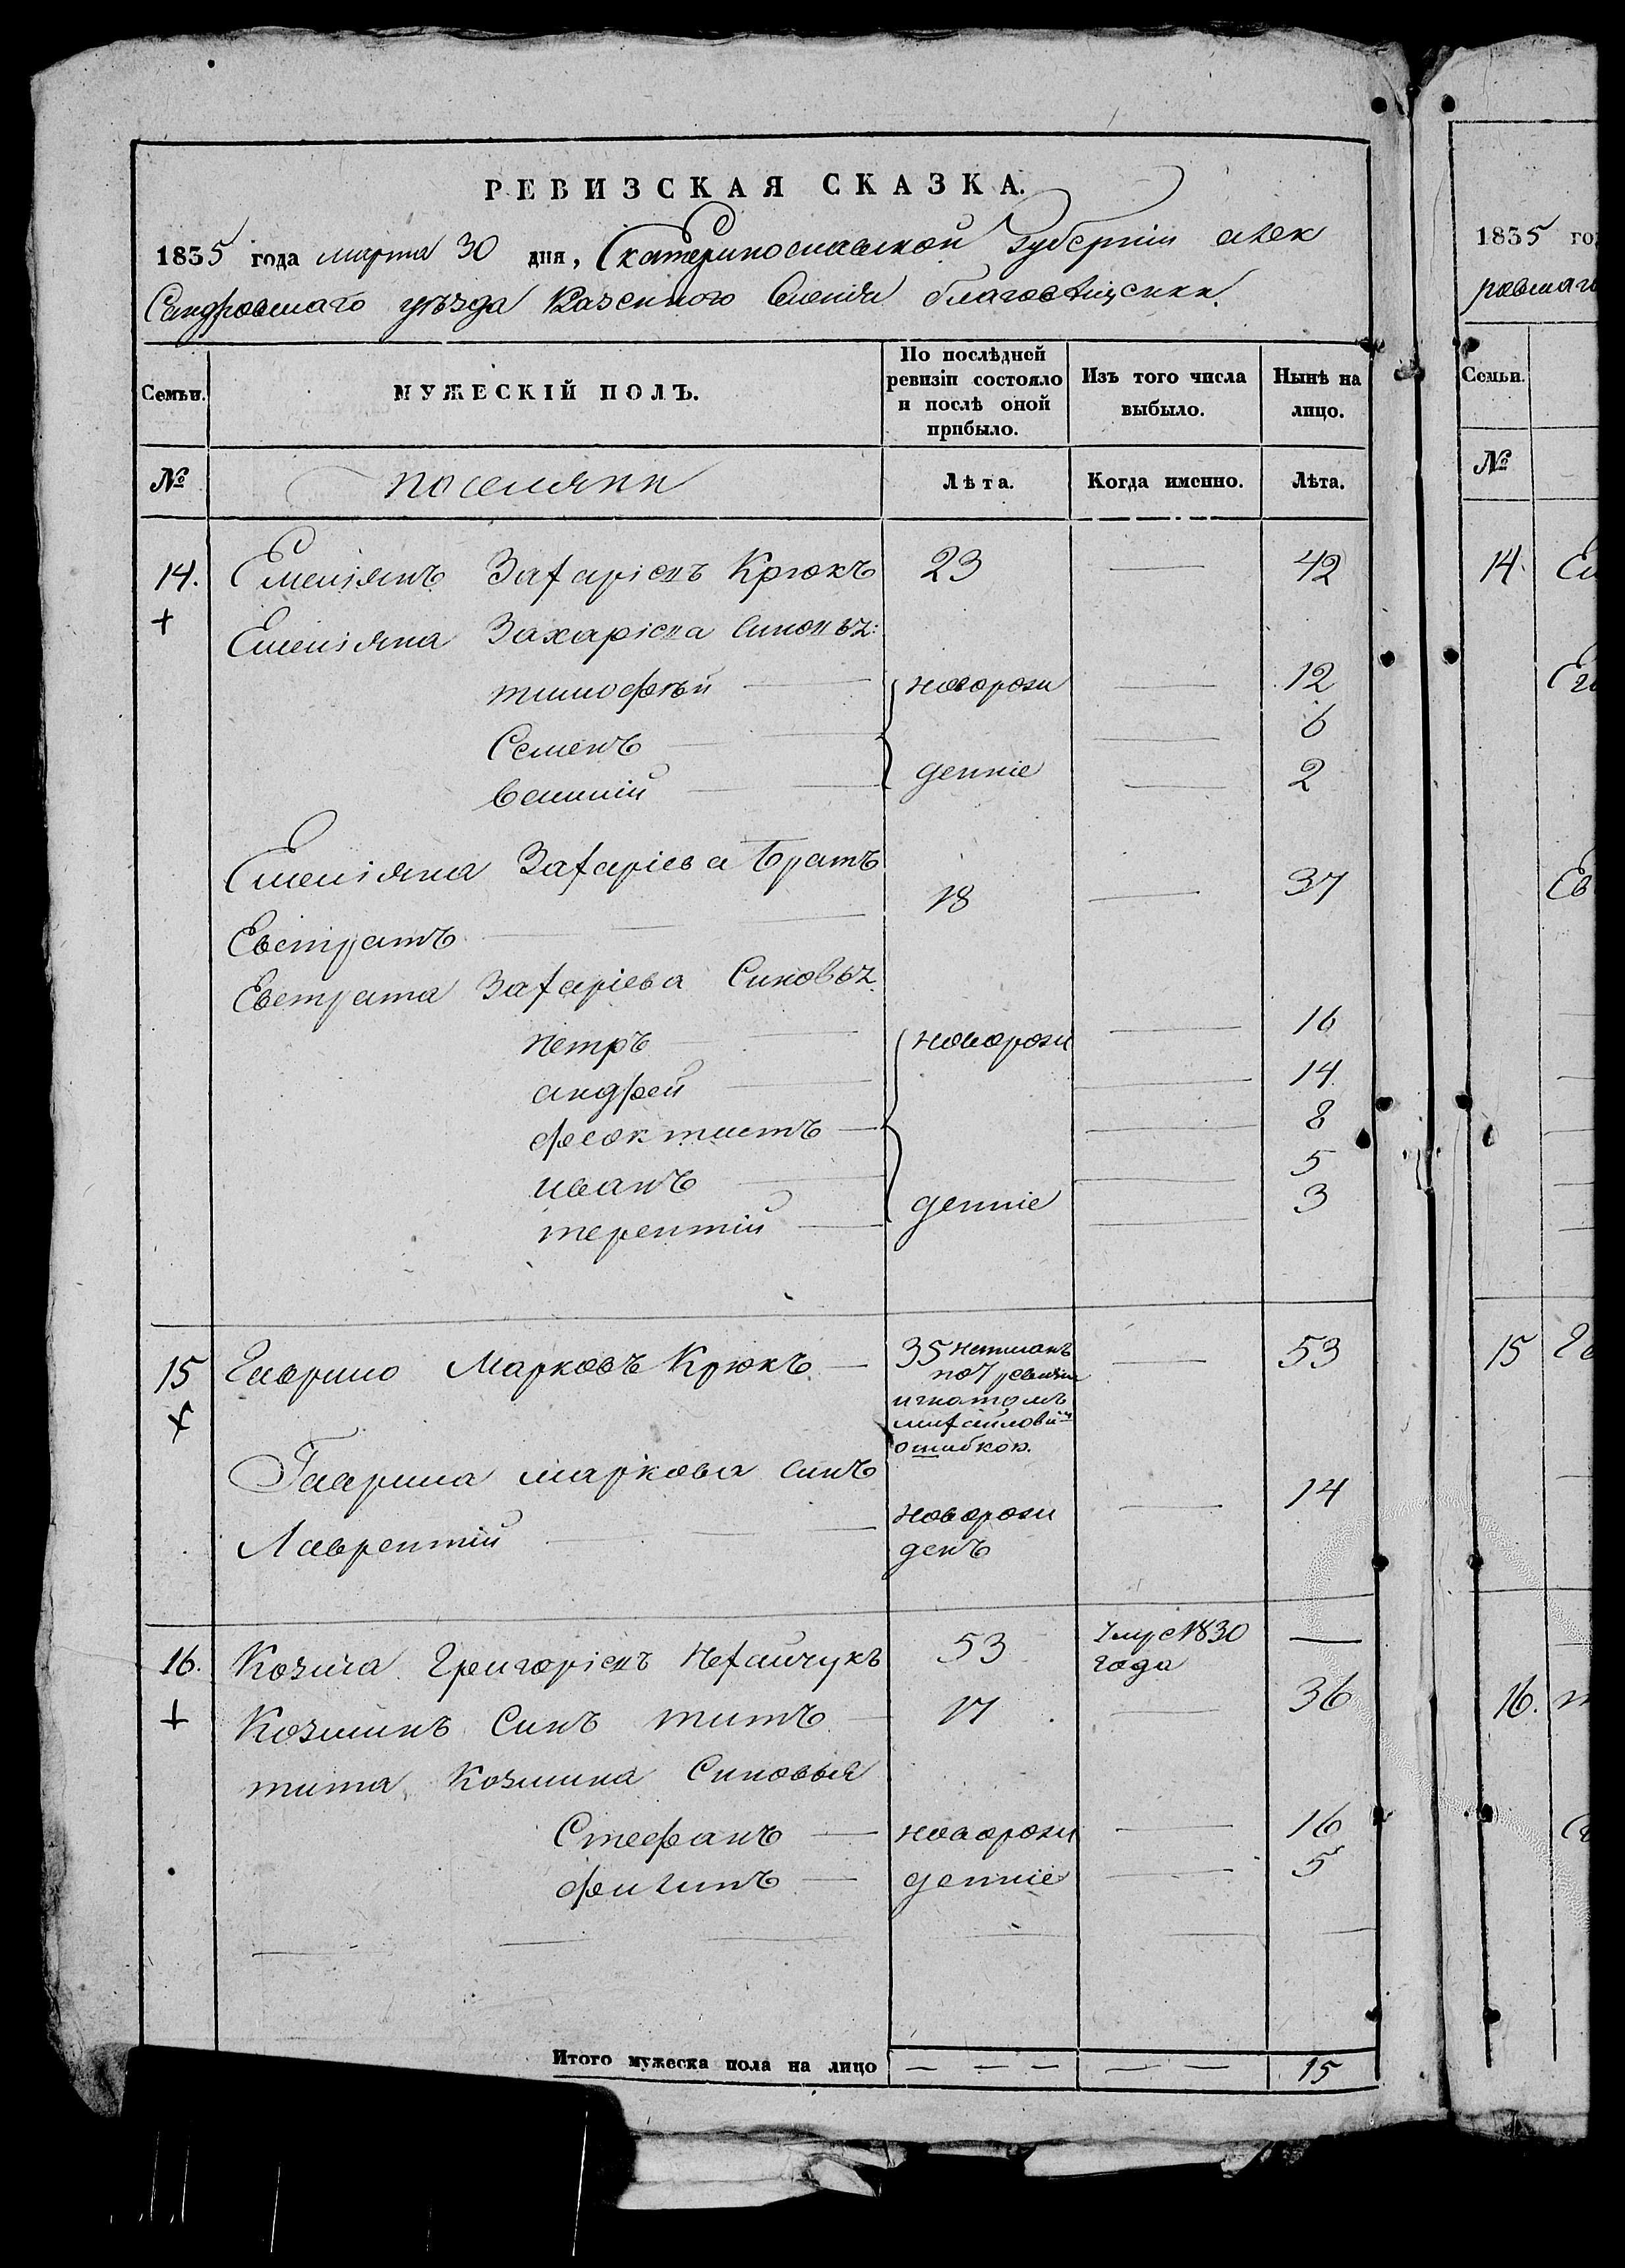 РЕВИЗСКАЯ СКАЗКА.
1835 года марта 30 дня, Екатеринославской Губерніи алек
Сандровскаго уѣзда Казенного Селенія благовѣщенки.
Семьи. МУЖЕСКІЙ ПОЛЪ. По послѣдней ревизіи состояло и послѣ оной прибыло. Изъ того числа выбыло. Нынѣ на лицо.
№ поселяни Лѣта. Когда именно. Лѣта.
14. Емеліянъ Захаріевъ Крюкъ 23 — 42
+ Емеліяна Захаріева Синовъ:
тимофѣй — новорож — 12
Семенъ — — 6
василій — денніе — 2
Емеліяна Захаріева Братъ
Евстратъ — 18 — 37
Евстрата Захаріева Синовъ
петръ — новорож — 16
андрей — — 14
феоктистъ — — 8
иванъ — — 5
терентій — денніе — 3
15 Гаврило Марковъ Крюкъ — 35 написанъ — 53
по 7 ревизіи
+ игнатомъ
михайловим
ошибкою.
Гаврила маркова синъ
новорож — 14
Лаврентій — денъ
16. Козма Григоріевъ Нехайчукъ 53 умре 1830 —
года
+ Козминъ Синъ титъ — 17 — 36
тита Козмина Синовья
Стефанъ — новорож — 16
филипъ — денніе — 5
Итого мужеска пола на лицо — — — — — — 15
1835 го
ровскаго
Семьи.
№
14. Ем
Ев
15 Га
16. т